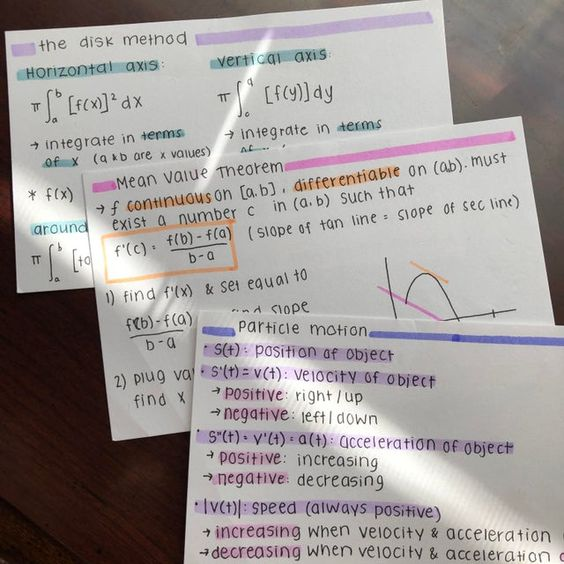 the disk method
Horizontal axis:
π∫ₐᵇ [f(x)]² dx
→ integrate in terms
of x (a & b are x values)
* f(x)
around
π∫ₐᵇ [to
vertical axis:
[f(y)]dy
→ integrate in terms
Mean Value Theorem
→ f continuous on [a,b], differentiable on (ab). must
exist a number c in (a,b) such that
f'(c) = f(b)-f(a) / b-a (slope of tan line = slope of sec line)
1) find f'(x) & set equal to
f(b)-f(a) / b-a slope
2) plug va
find x
particle motion
• s(t): position of object
• s'(t) = v(t): velocity of object
→ positive: right/up
→ negative: left/down
• s"(t) = v'(t) = a(t): acceleration of object
→ positive: increasing
→ negative: decreasing
• |v(t)|: speed (always positive)
→ increasing when velocity & acceleration
→ decreasing when velocity & acceleration